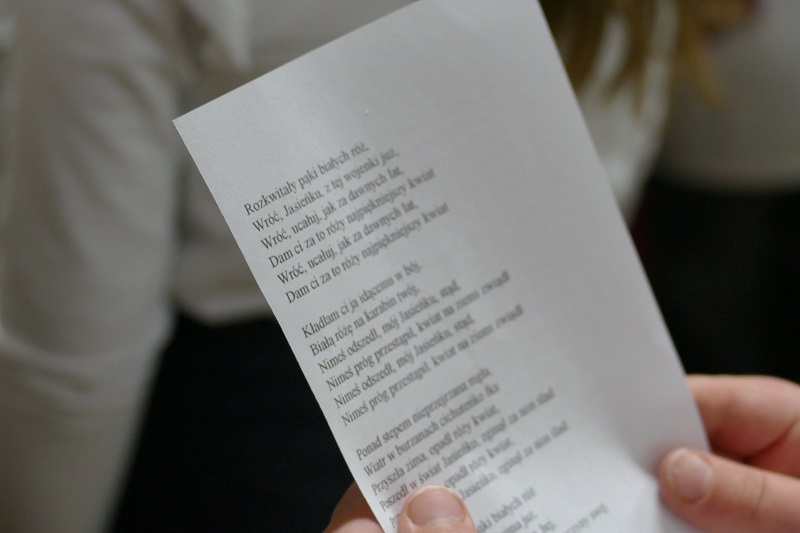 Rozkwitały pąki białych róż,
Wróć, Jasieńku, z tej wojenki już,
Wróć, ucałuj, jak za dawnych lat,
Dam ci za to róży najpiękniejszy kwiat
Wróć, ucałuj, jak za dawnych lat,
Dam ci za to róży najpiękniejszy kwiat
Kładłam ci ja idącemu w bój,
Białą różę na karabin twój,
Nimeś odszedł, mój Jasieńku, stąd,
Nimeś próg przestąpił, kwiat na ziemi zwiądł
Nimeś odszedł, mój Jasieńku, stąd,
Nimeś próg przestąpił, kwiat na ziemi zwiądł
Ponad stepem nieprzejrzana mgła,
Wiatr w burzanach cichuteńko łka
Przyszła zima, opadł róży kwiat,
Poszedł w świat Jasieńko, zginął za nim ślad
opadł róży kwiat,
Jasieńko, zginął za nim ślad
pąki białych róż